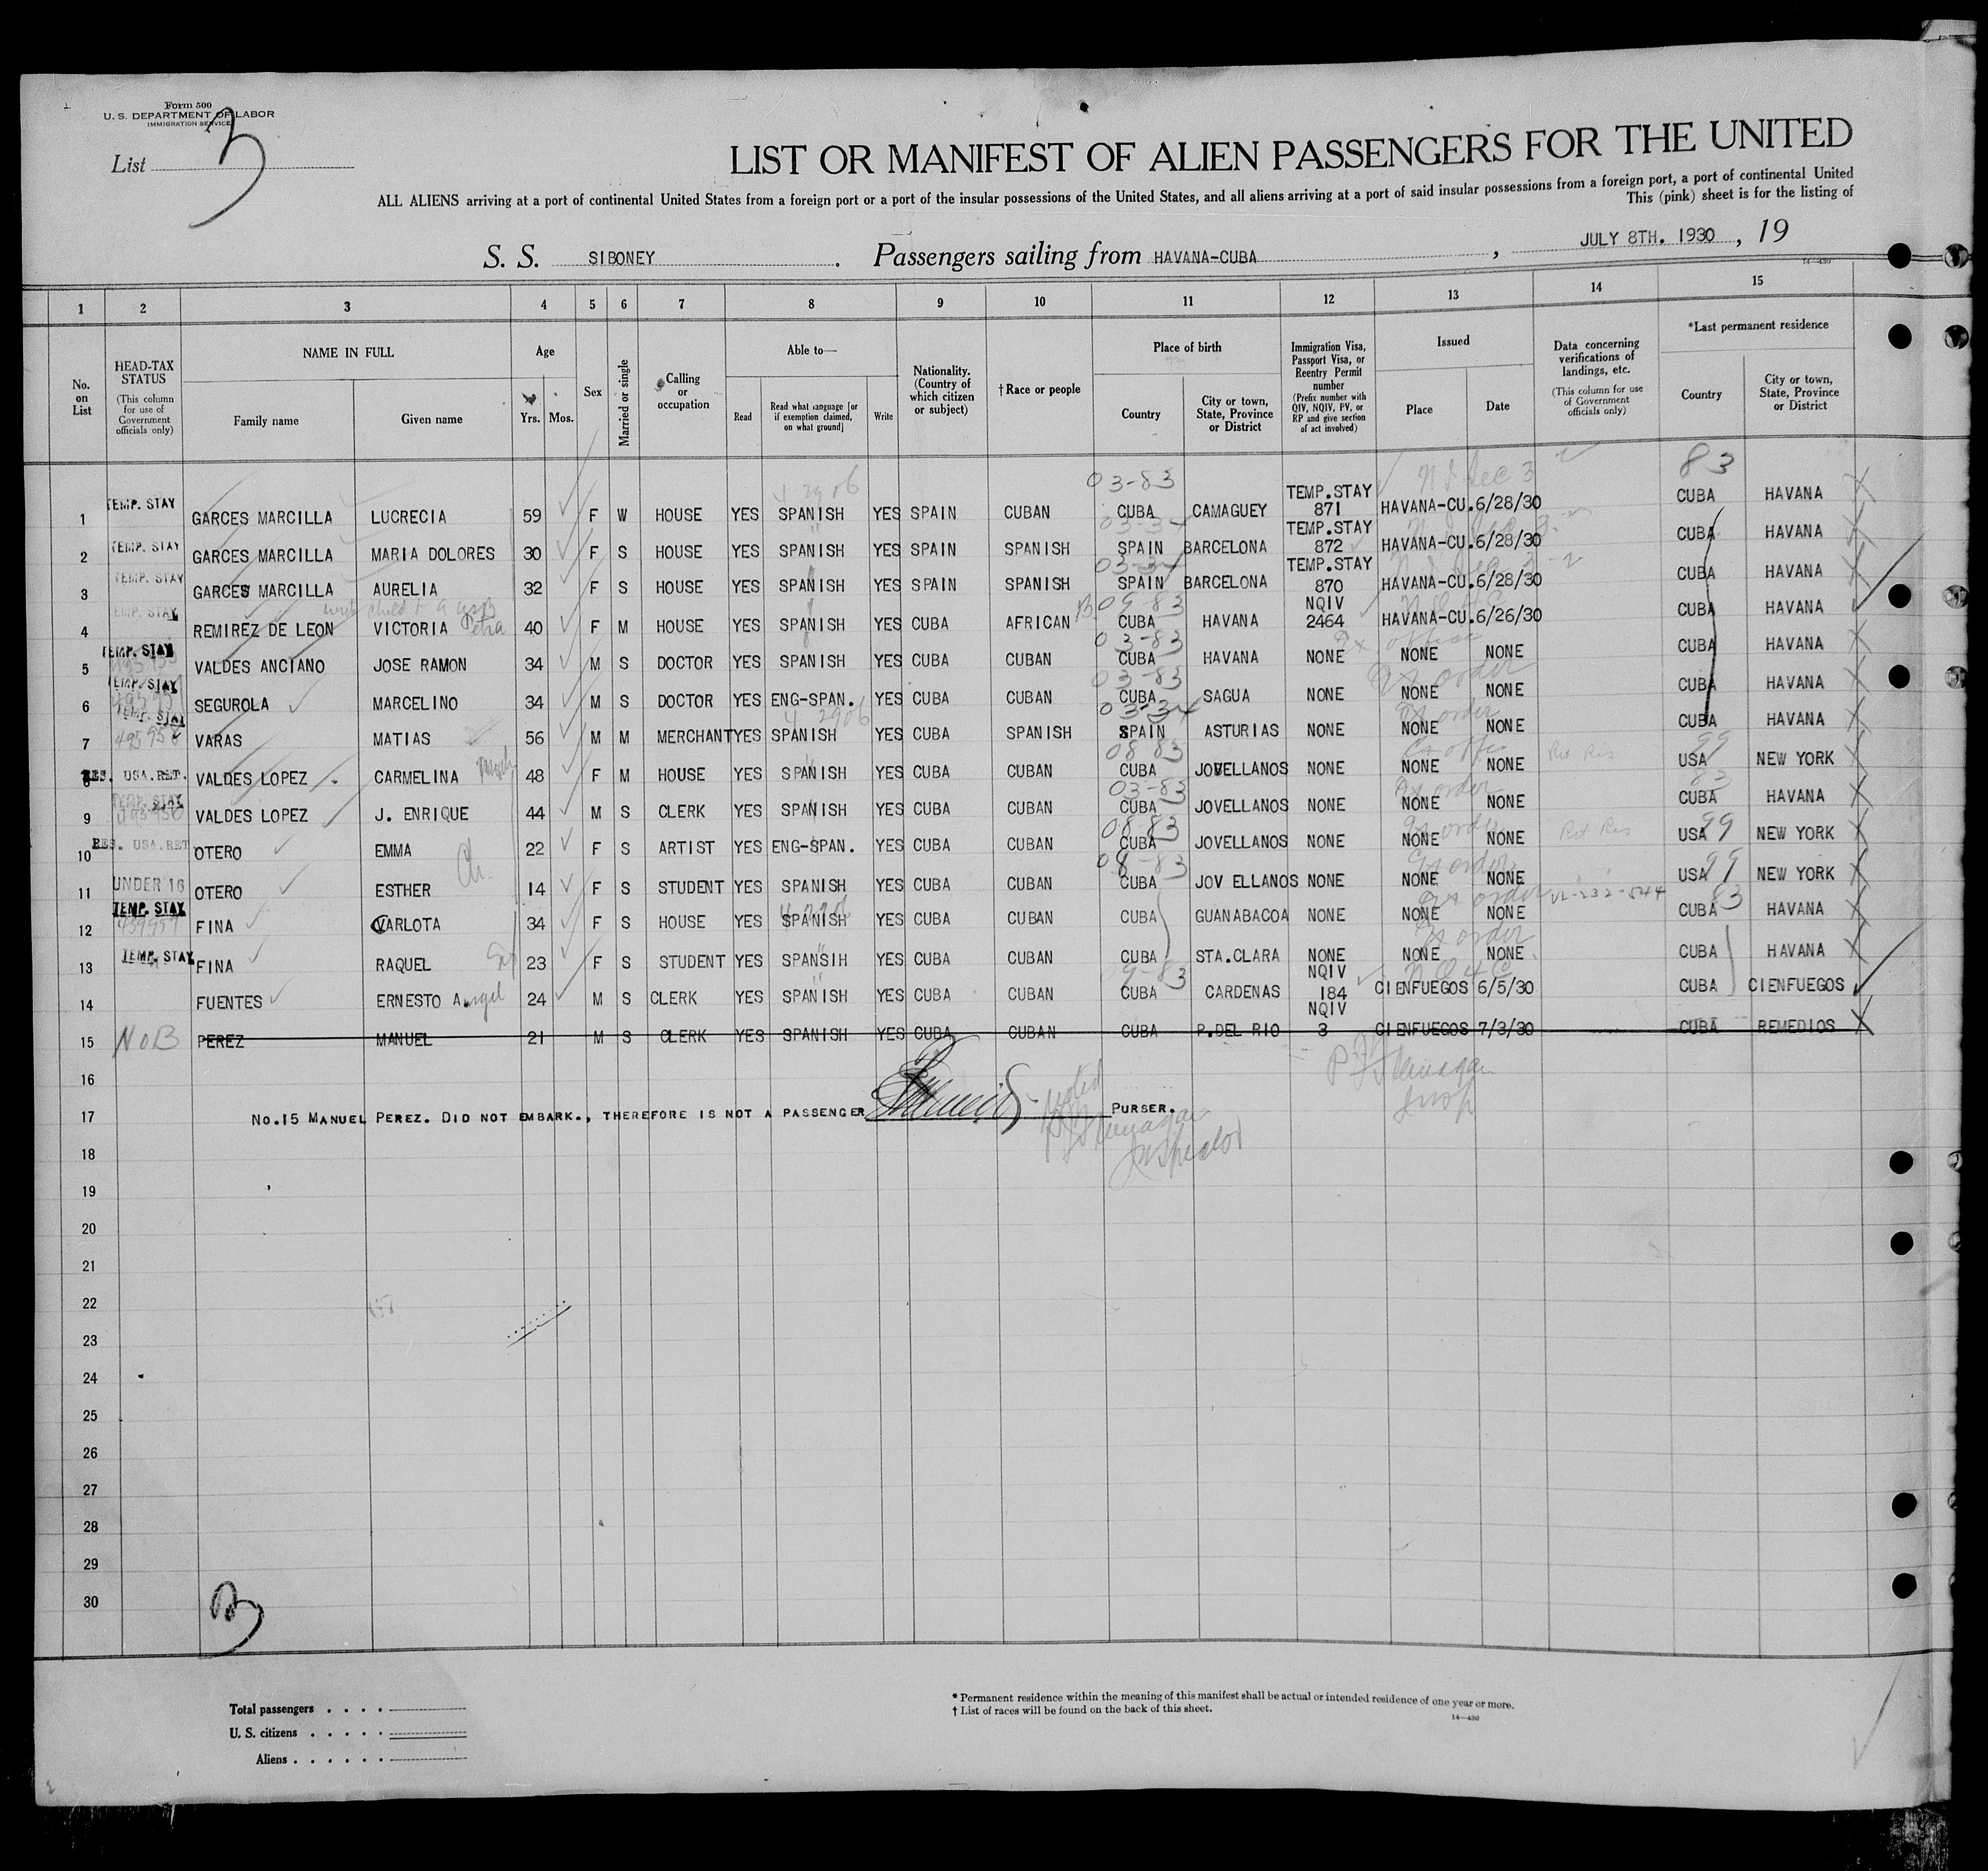 Form 500
U. S. DEPARTMENT OF LABOR
IMMIGRATION SERVICE
List 3
LIST OR MANIFEST OF ALIEN PASSENGERS FOR THE UNITED
ALL ALIENS arriving at a port of continental United States from a foreign port or a port of the insular possessions of the United States, and all aliens arriving at a port of said insular possessions from a foreign port, a port of continental United
This (pink) sheet is for the listing of
S. S. SIBONEY. Passengers sailing from HAVANA-CUBA, JULY 8TH. 1930, 19
14—430
1 2 3 4 5 6 7 8 9 10 11 12 13 14 15
No. on List
HEAD-TAX STATUS
(This column for use of Government officials only)
NAME IN FULL
Family name
Given name
Age
Yrs. Mos.
Sex
Married or single
Calling or occupation
Able to—
Read
Read what language [or if exemption claimed, on what ground]
Write
Nationality. (Country of which citizen or subject)
†Race or people
Place of birth
Country
City or town, State, Province or District
Immigration Visa, Passport Visa, or Reentry Permit number
(Prefix number with QIV, NQIV, PV, or RP and give section of act involved)
Issued
Place
Date
Data concerning verifications of landings, etc.
(This column for use of Government officials only)
*Last permanent residence
Country
City or town, State, Province or District
03-83 83
1 TEMP. STAY GARCES MARCILLA LUCRECIA 59 F W HOUSE YES SPANISH YES SPAIN CUBAN CUBA CAMAGUEY TEMP.STAY 871 HAVANA-CU. 6/28/30 CUBA HAVANA
2 TEMP. STAY GARCES MARCILLA MARIA DOLORES 30 F S HOUSE YES SPANISH YES SPAIN SPANISH 03-34 SPAIN BARCELONA TEMP.STAY 872 HAVANA-CU. 6/28/30 CUBA HAVANA
3 TEMP. STAY GARCES MARCILLA AURELIA 32 F S HOUSE YES SPANISH YES SPAIN SPANISH 03-34 SPAIN BARCELONA TEMP.STAY 870 HAVANA-CU. 6/28/30 CUBA HAVANA
4 TEMP. STAY REMIREZ DE LEON VICTORIA Petra 40 F M HOUSE YES SPANISH YES CUBA AFRICAN 09-83 CUBA HAVANA NQIV 2464 HAVANA-CU. 6/26/30 CUBA HAVANA
5 TEMP. STAY VALDES ANCIANO JOSE RAMON 34 M S DOCTOR YES SPANISH YES CUBA CUBAN 03-83 CUBA HAVANA NONE NONE NONE CUBA HAVANA
6 TEMP. STAY SEGUROLA MARCELINO 34 M S DOCTOR YES ENG-SPAN. YES CUBA CUBAN 03-83 CUBA SAGUA NONE NONE NONE CUBA HAVANA
7 TEMP. STAY VARAS MATIAS 56 M M MERCHANT YES SPANISH YES CUBA SPANISH 03-34 SPAIN ASTURIAS NONE NONE NONE CUBA HAVANA
8 RES. USA.RET. VALDES LOPEZ CARMELINA 48 F M HOUSE YES SPANISH YES CUBA CUBAN 08 83 CUBA JOVELLANOS NONE NONE NONE USA 99 NEW YORK
9 TEMP. STAY VALDES LOPEZ J. ENRIQUE 44 M S CLERK YES SPANISH YES CUBA CUBAN 03-83 CUBA JOVELLANOS NONE NONE NONE CUBA 83 HAVANA
10 RES. USA.RET OTERO EMMA 22 F S ARTIST YES ENG-SPAN. YES CUBA CUBAN 08 83 CUBA JOVELLANOS NONE NONE NONE USA 99 NEW YORK
11 UNDER 16 OTERO ESTHER 14 F S STUDENT YES SPANISH YES CUBA CUBAN 08-83 CUBA JOV ELLANOS NONE NONE NONE USA 99 NEW YORK
12 TEMP. STAY FINA CARLOTA 34 F S HOUSE YES SPANISH YES CUBA CUBAN CUBA GUANABACOA NONE NONE NONE CUBA 83 HAVANA
13 TEMP. STAY FINA RAQUEL 23 F S STUDENT YES SPANSIH YES CUBA CUBAN CUBA STA.CLARA NONE NONE NONE CUBA HAVANA
14 FUENTES ERNESTO Angel 24 M S CLERK YES SPANISH YES CUBA CUBAN 09-83 CUBA CARDENAS NQIV 184 CIENFUEGOS 6/5/30 CUBA CIENFUEGOS
15 NoB PEREZ MANUEL 21 M S CLERK YES SPANISH YES CUBA CUBAN CUBA P.DEL RIO NQIV 3 CIENFUEGOS 7/3/30 CUBA REMEDIOS
16
17 No.15 MANUEL PEREZ. DID NOT EMBARK., THEREFORE IS NOT A PASSENGER PURSER.
Noted
Inspector
18
19
20
21
22
23
24
25
26
27
28
29
30
Total passengers . . . .
U. S. citizens . . . . .
Aliens . . . . . .
* Permanent residence within the meaning of this manifest shall be actual or intended residence of one year or more.
† List of races will be found on the back of this sheet.
14—430